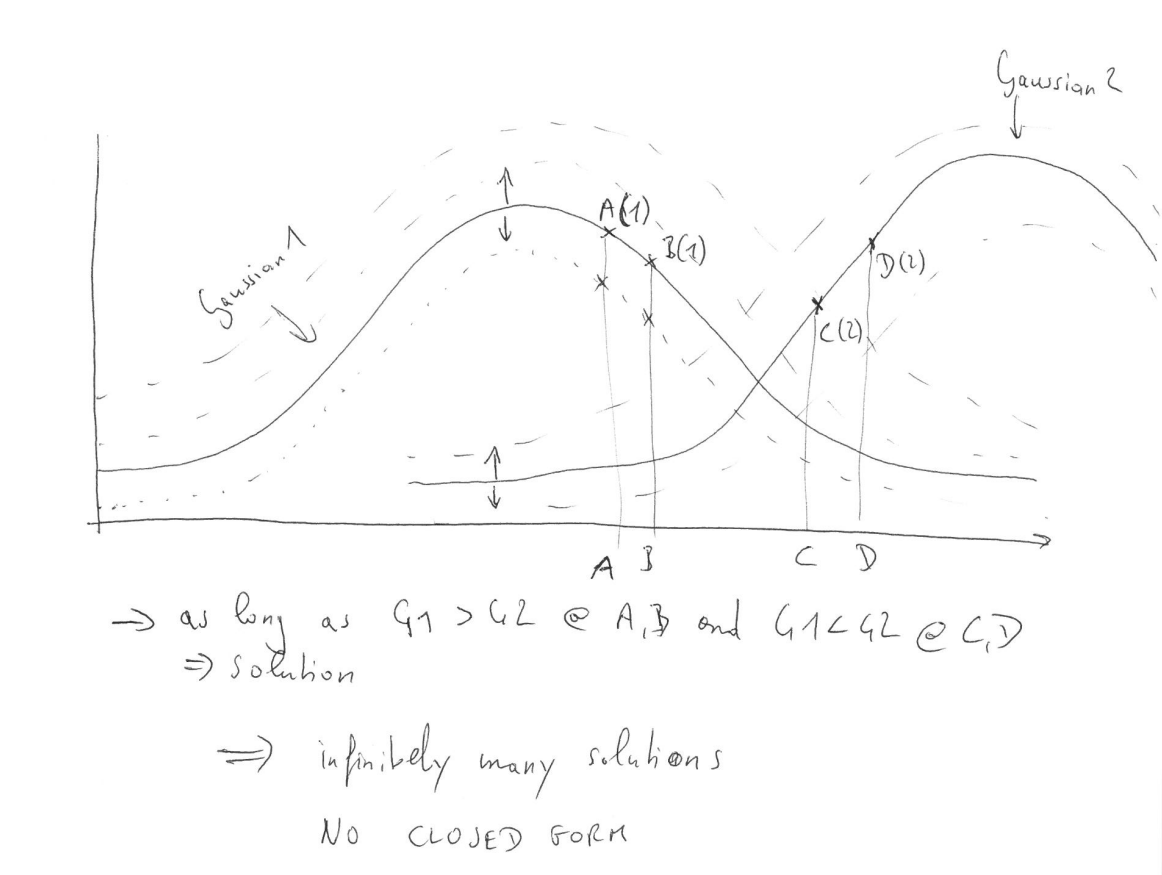 Gaussian 2
Gaussian 1
A(1)
B(1)
D(2)
C(2)
A B C D
→ as long as G1 > G2 @ A,B and G1 < G2 @ C,D
⇒ solution
⇒ infinitely many solutions
NO CLOSED FORM